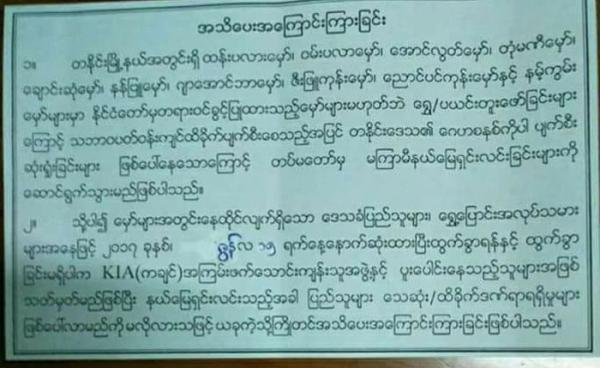 အသိပေးအကြောင်းကြားခြင်း
၁။ တနိုင်းမြို့နယ်အတွင်းရှိ ထန်းပလားမှော်၊ ဝမ်းပလာမှော်၊ အောင်လွတ်မှော်၊ တုံမဏီမှော်၊
ချောင်းဆုံမှော်၊ နန်ဖြူမှော်၊ ဂျာအောင်ဘာမှော်၊ ဇီးဖြူကုန်းမှော်၊ ညောင်ပင်ကုန်းမှော်နှင့် နမ့်ကွမ်း
မှော်များမှာ နိုင်ငံတော်မှတရားဝင်ခွင့်ပြုထားသည့်မှော်များမဟုတ်ဘဲ ရွှေ/ပယင်းတူးဖော်ခြင်းများ
ကြောင့် သဘာဝပတ်ဝန်းကျင်ထိခိုက်ပျက်စီးစေသည့်အပြင် တနိုင်းဒေသ၏ ဂေဟစနစ်ကိုပါ ပျက်စီး
ဆုံးရှုံးခြင်းများ ဖြစ်ပေါ်နေသောကြောင့် တပ်မတော်မှ မကြာမီနယ်မြေရှင်းလင်းခြင်းများကို
ဆောင်ရွက်သွားမည်ဖြစ်ပါသည်။
၂။ သို့ပါ၍ မှော်များအတွင်းနေထိုင်လျက်ရှိသော ဒေသခံပြည်သူများ၊ ရွှေ့ပြောင်းအလုပ်သမား
များအနေဖြင့် ၂၀၁၇ ခုနှစ်၊ ဇွန်လ ၁၅ ရက်နေ့နောက်ဆုံးထားပြီးထွက်ခွာရန်နှင့် ထွက်ခွာ
ခြင်းမရှိပါက KIA(ကချင်)အကြမ်းဖက်သောင်းကျန်းသူအဖွဲ့နှင့် ပူးပေါင်းနေသည့်သူများအဖြစ်
သတ်မှတ်မည်ဖြစ်ပြီး နယ်မြေရှင်းလင်းသည့်အခါ ပြည်သူများ သေဆုံး/ထိခိုက်ဒဏ်ရာရရှိမှုများ
ဖြစ်ပေါ်လာမည်ကိုမလိုလားသဖြင့်ယခုကဲ့သို့ကြိုတင်အသိပေးအကြောင်းကြားခြင်းဖြစ်ပါသည်။